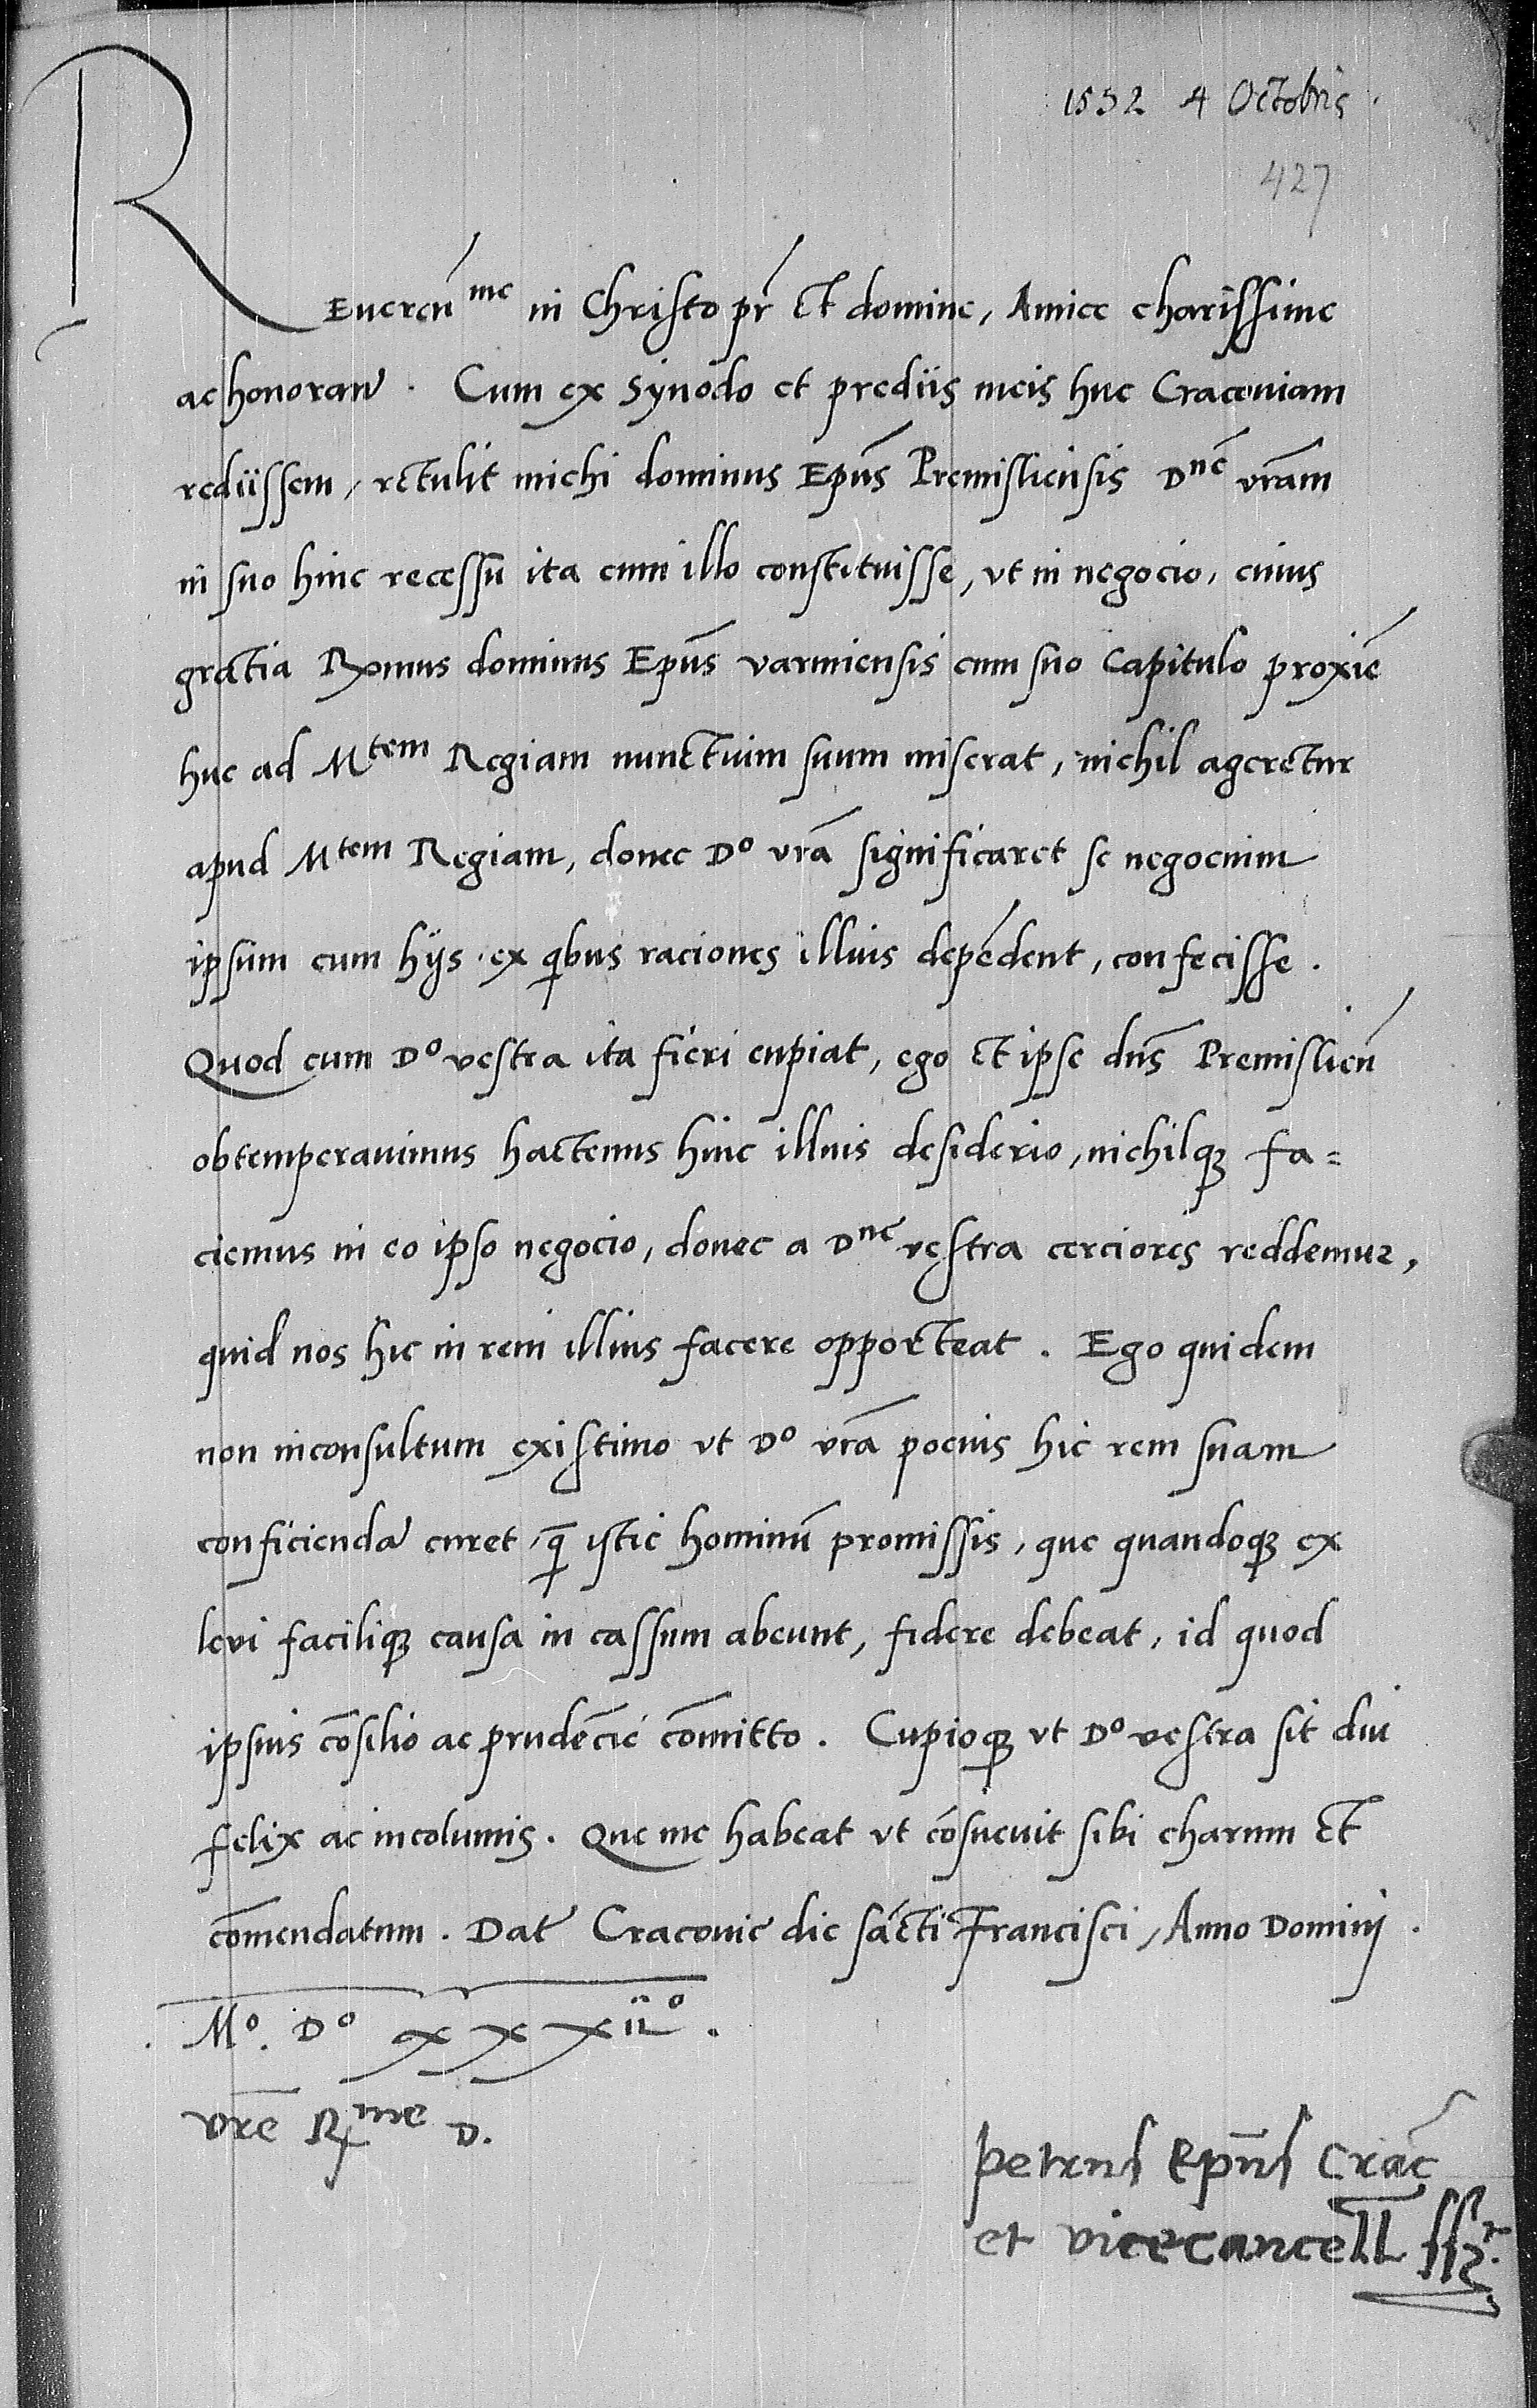 1532 4 Octobris
427
REueren͞ᵐᵉ in Christo pr͞ et domine, Amice charissime
ac honoran͞. Cum ex Synodo et prediis meis huc Cracoviam
rediissem, retulit michi dominus Ep͞us Premisliensis Dⁿᵉ vr͞am
in suo hinc recessu ita cum illo constituisse, vt in negocio, cuius
gratia R͞mus dominus Ep͞us varmiensis cum suo Capitulo proxie͞
huc ad Mᵗᵉᵐ Regiam nunctium suum miserat, nichil ageretur
apud Mᵗᵉᵐ Regiam, donec Dᵒ vr͞a significaret se negocium
ipsum cum hijs, ex q͞bus raciones illius depe͞dent, confecisse.
Quod cum Dᵒ vestra ita fieri cupiat, ego et ipse dn͞s Premislien͞
obtemperauimus hactenus hinc illius desiderio, nichilqꝫ fa=
ciemus in eo ipso negocio, donec a Dⁿᵉ vestra cerciores reddemur,
quid nos hic in rem illius facere opporteat. Ego quidem
non inconsultum existimo vt Dᵒ vr͞a pocius hic rem suam
conficienda͞ curet, q͞ istic hominu͞ promissis, que quandoqꝫ ex
levi faciliqꝫ causa in cassum abeunt, fidere debeat, id quod
ipsius co͞silio ac prude͞cie co͞mitto. Cupioqꝫ vt Dᵒ vestra sit diu
felix ac incolumis. Que me habeat vt co͞sueuit sibi charum et
co͞mendatum. Dat͞ Cracovie die sa͞cti Francisci, Anno Dominj.
Mᵒ. Dᵒ xxxiiᵒ.
vr͞e Rᵐᵉ D.
Petrus Ep͞us Crac͞
et vicecancell͞ ssr.